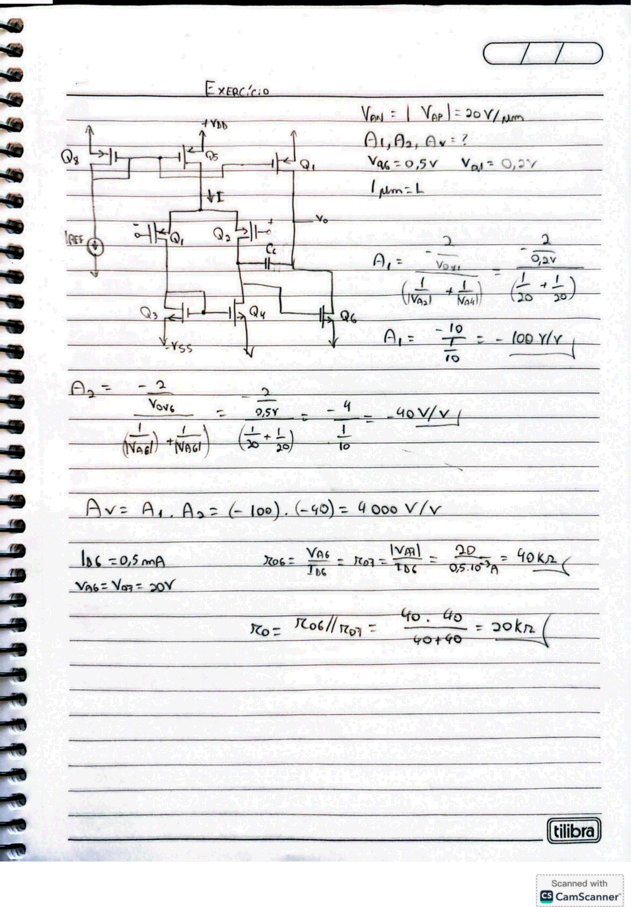 EXERCÍCIO
VAN = | VAP | = 20 V/μm
A1, A2, Av = ?
VQ6 = 0,5V VQ1 = 0,2V
1 μm = L
+VDD
Q8
Q5
Q1
↓I
Vo
IREF
- Q1 Q2 +
Cc
Q3 Q4 Q6
-VSS
A1 = - 2/VOV1 / (1/|VA2| + 1/|VA4|) = - 2/0,2V / (1/20 + 1/20)
A1 = -10 / 1/10 = -100 V/V
A2 = - 2/VOV6 / (1/|VA6| + 1/|VA6|) = - 2/0,5V / (1/20 + 1/20) = -4 / 1/10 = -40 V/V
Av = A1 . A2 = (-100) . (-40) = 4000 V/V
ID6 = 0,5 mA
r06 = VA6/ID6 = r07 = |VA7|/ID6 = 20/0,5.10⁻³A = 40KΩ
VA6 = VA7 = 20V
r0 = r06 // r07 = 40 . 40 / 40+40 = 20KΩ
tilibra
Scanned with
CS CamScanner